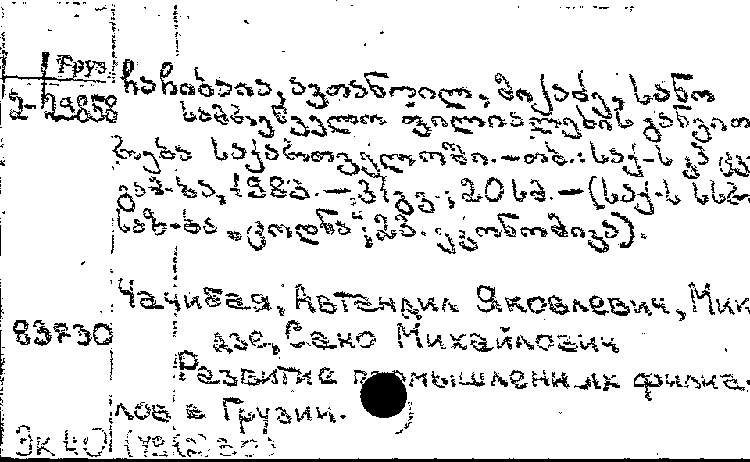 Груз.
2-29858
ჩაჩიბაია, ავთანდილ, მიქაძე, სანო
სამრეწველო ფილიალების განვით
რება საქართველოში. – თბ.: საქ-ს
გამ-ბა, 1983. – 31 გვ.; 20 სმ. – (საქ-ს სსრ
საზ-ბა „ცოდნა“; 23. ეკონომიკა).
Чачибая, Автандил Яковлевич, Мик
83730
дзе, Сано Михайлович
Развитие промышленных филиа-
лов в Грузии.
Эк 40